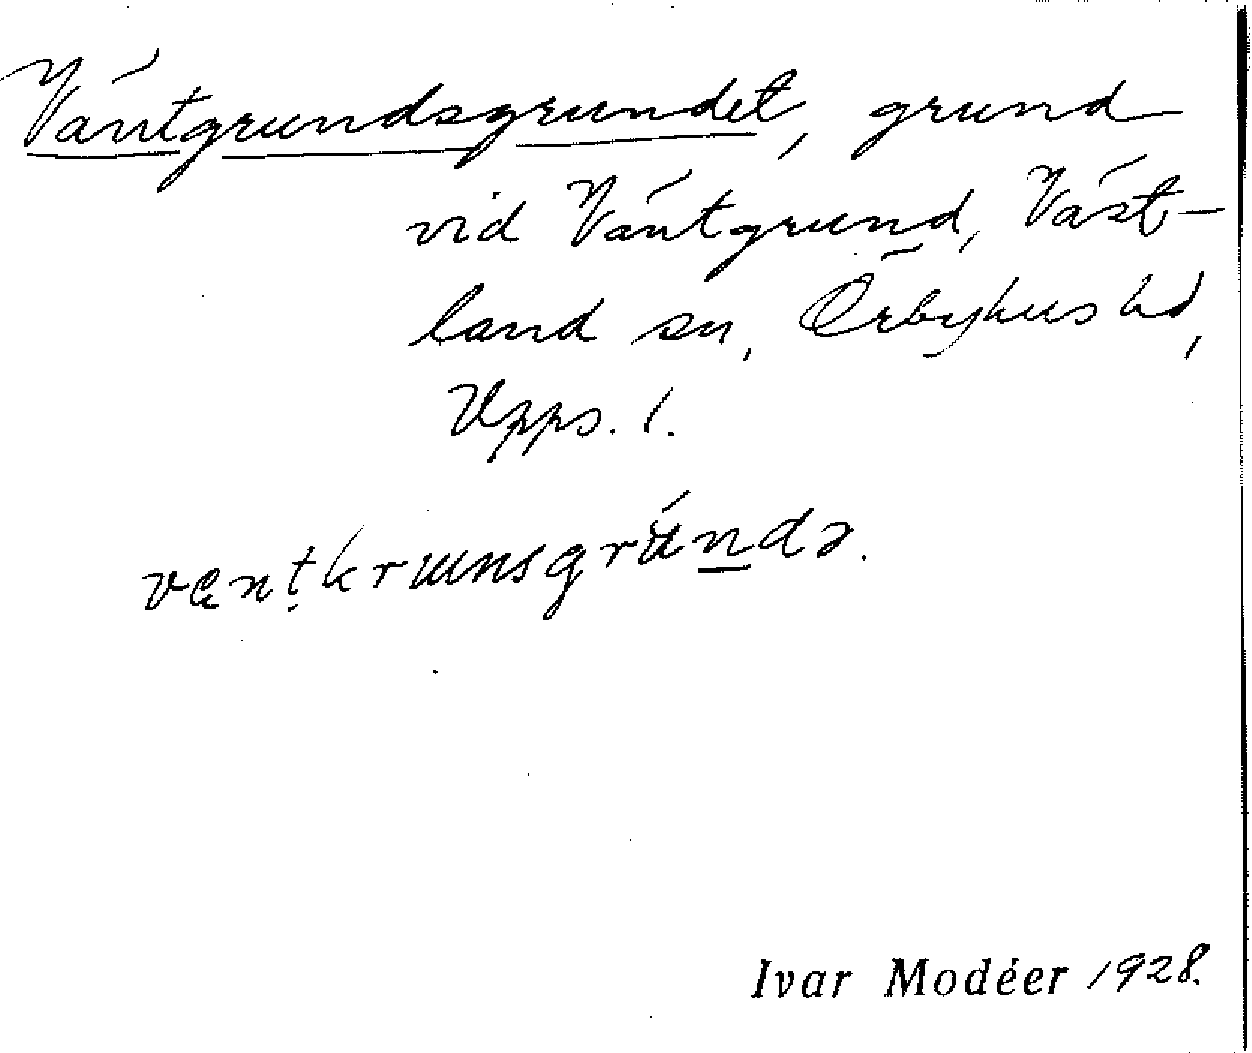 Väntgrundsgrundet, grund
vid Väntgrund, Väst-
land sn, Örbyhus hd,
Upps. l.
Ivar Modéer 1928.